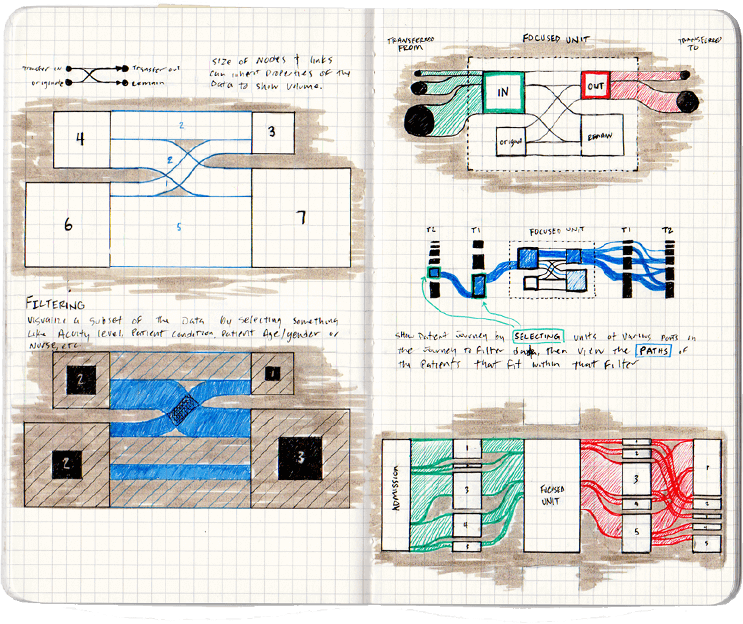 Transfer in
Transfer out
originate
Remain
Size of nodes & links
can inherit properties of the
Data to show volume.
4
2
3
2
1
6
5
7
FILTERING
Visualize a subset of the Data by selecting something
like Acuity level, Patient condition, Patient Age/gender or
Nurse, etc.
2
1
2
3
TRANSFERRED
FROM
FOCUSED UNIT
TRANSFERRED
TO
IN
OUT
Original
REMAIN
T2
T1
FOCUSED UNIT
T1
T2
Show Patient Journey by SELECTING units at various points in
the journey to filter data, then view the PATHS of
the Patients that fit within that filter
ADMISSION
1
3
4
5
FOCUSED
UNIT
1
2
3
4
5
1
2
3
4
5